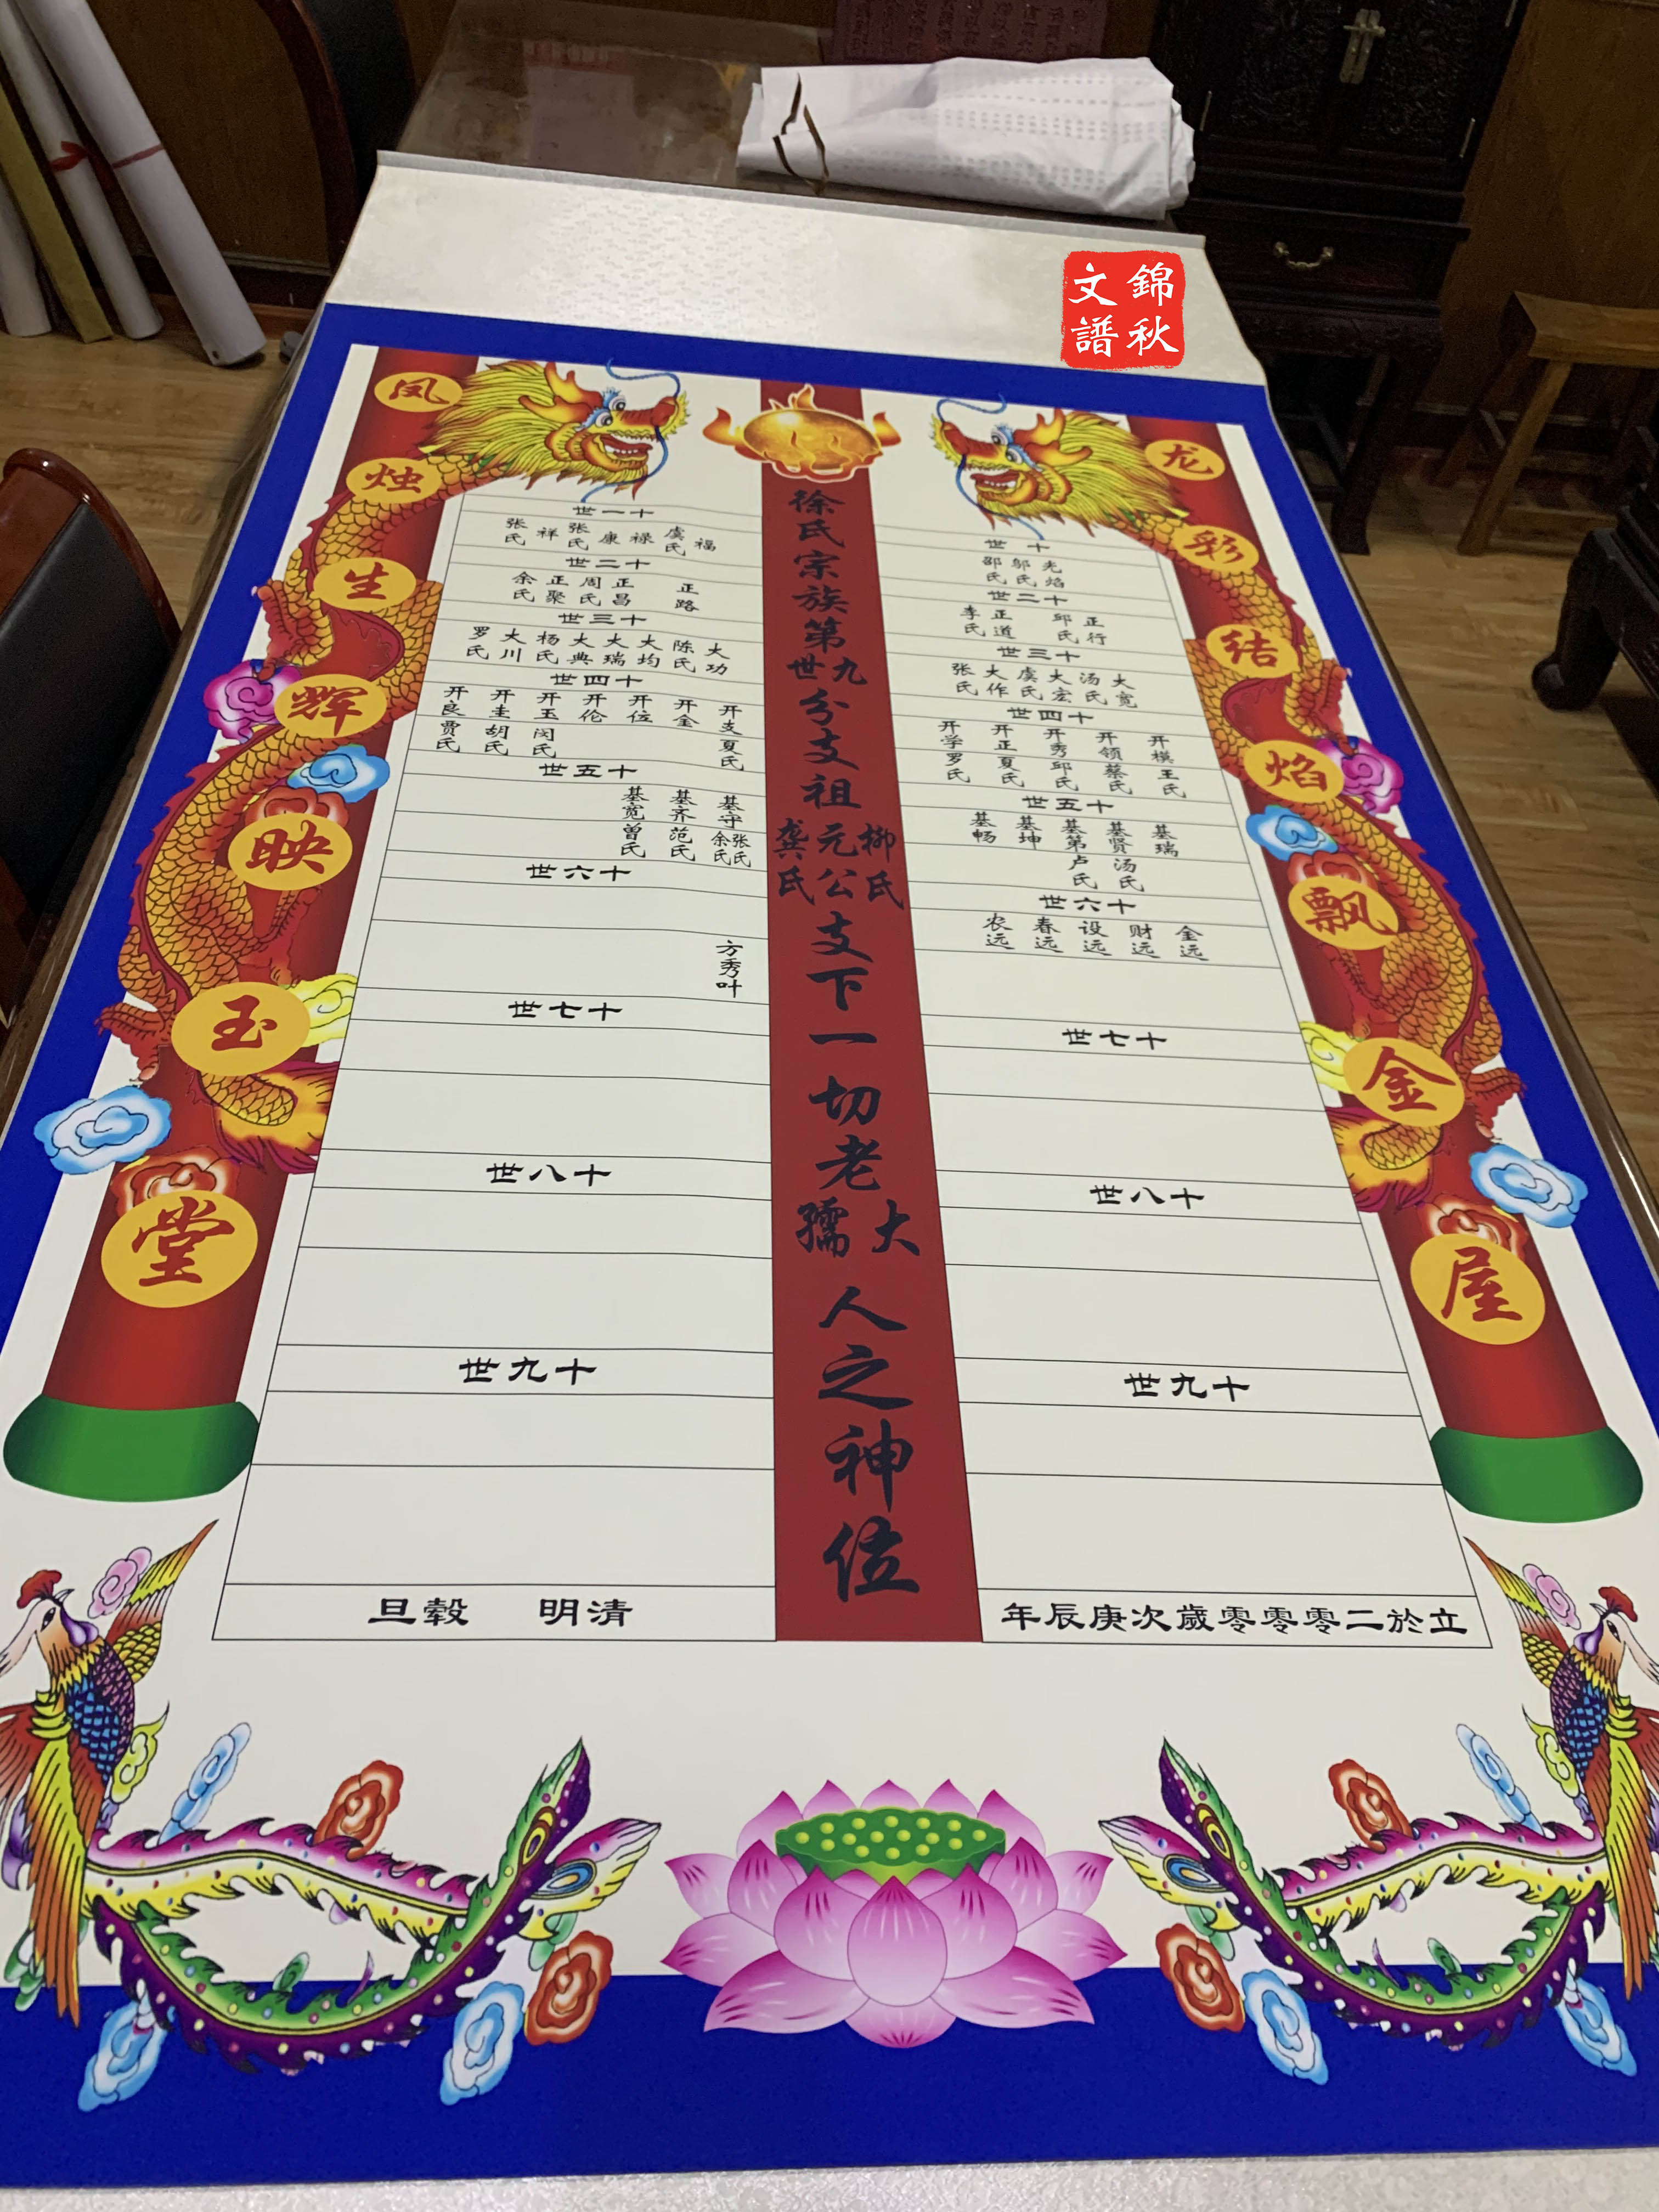 錦秋
文譜
龙彩结焰飘金屋
凤烛生辉映玉堂
徐氏宗族第九世分支祖柳氏元公龚氏支下一切老大孺人之神位
十世
光焰 邬氏 邵氏
十二世
正行 邱氏 正道 李氏
十三世
大宽 汤氏 大宏 虞氏 大作 张氏
十四世
开模 开领 开秀 开正 开学
王氏 蔡氏 邱氏 夏氏 罗氏
十五世
基瑞 基贤 基第 基坤 基畅
汤氏 卢氏
十六世
金远 财远 设远 春远 农远
十七世
十八世
十九世
立於二零零零歲次庚辰年
十一世
福 虞氏 禄 康 张氏 祥 张氏
十二世
正路 正昌 周氏 正聚 余氏
十三世
大功 陈氏 大均 大瑞 大典 杨氏 大川 罗氏
十四世
开支 开金 开位 开伦 开玉 开圭 开良
夏氏 闵氏 胡氏 贾氏
十五世
基守 基齐 基宽
张氏 余氏 范氏 曾氏
十六世
方秀叶
十七世
十八世
十九世
清明 穀旦